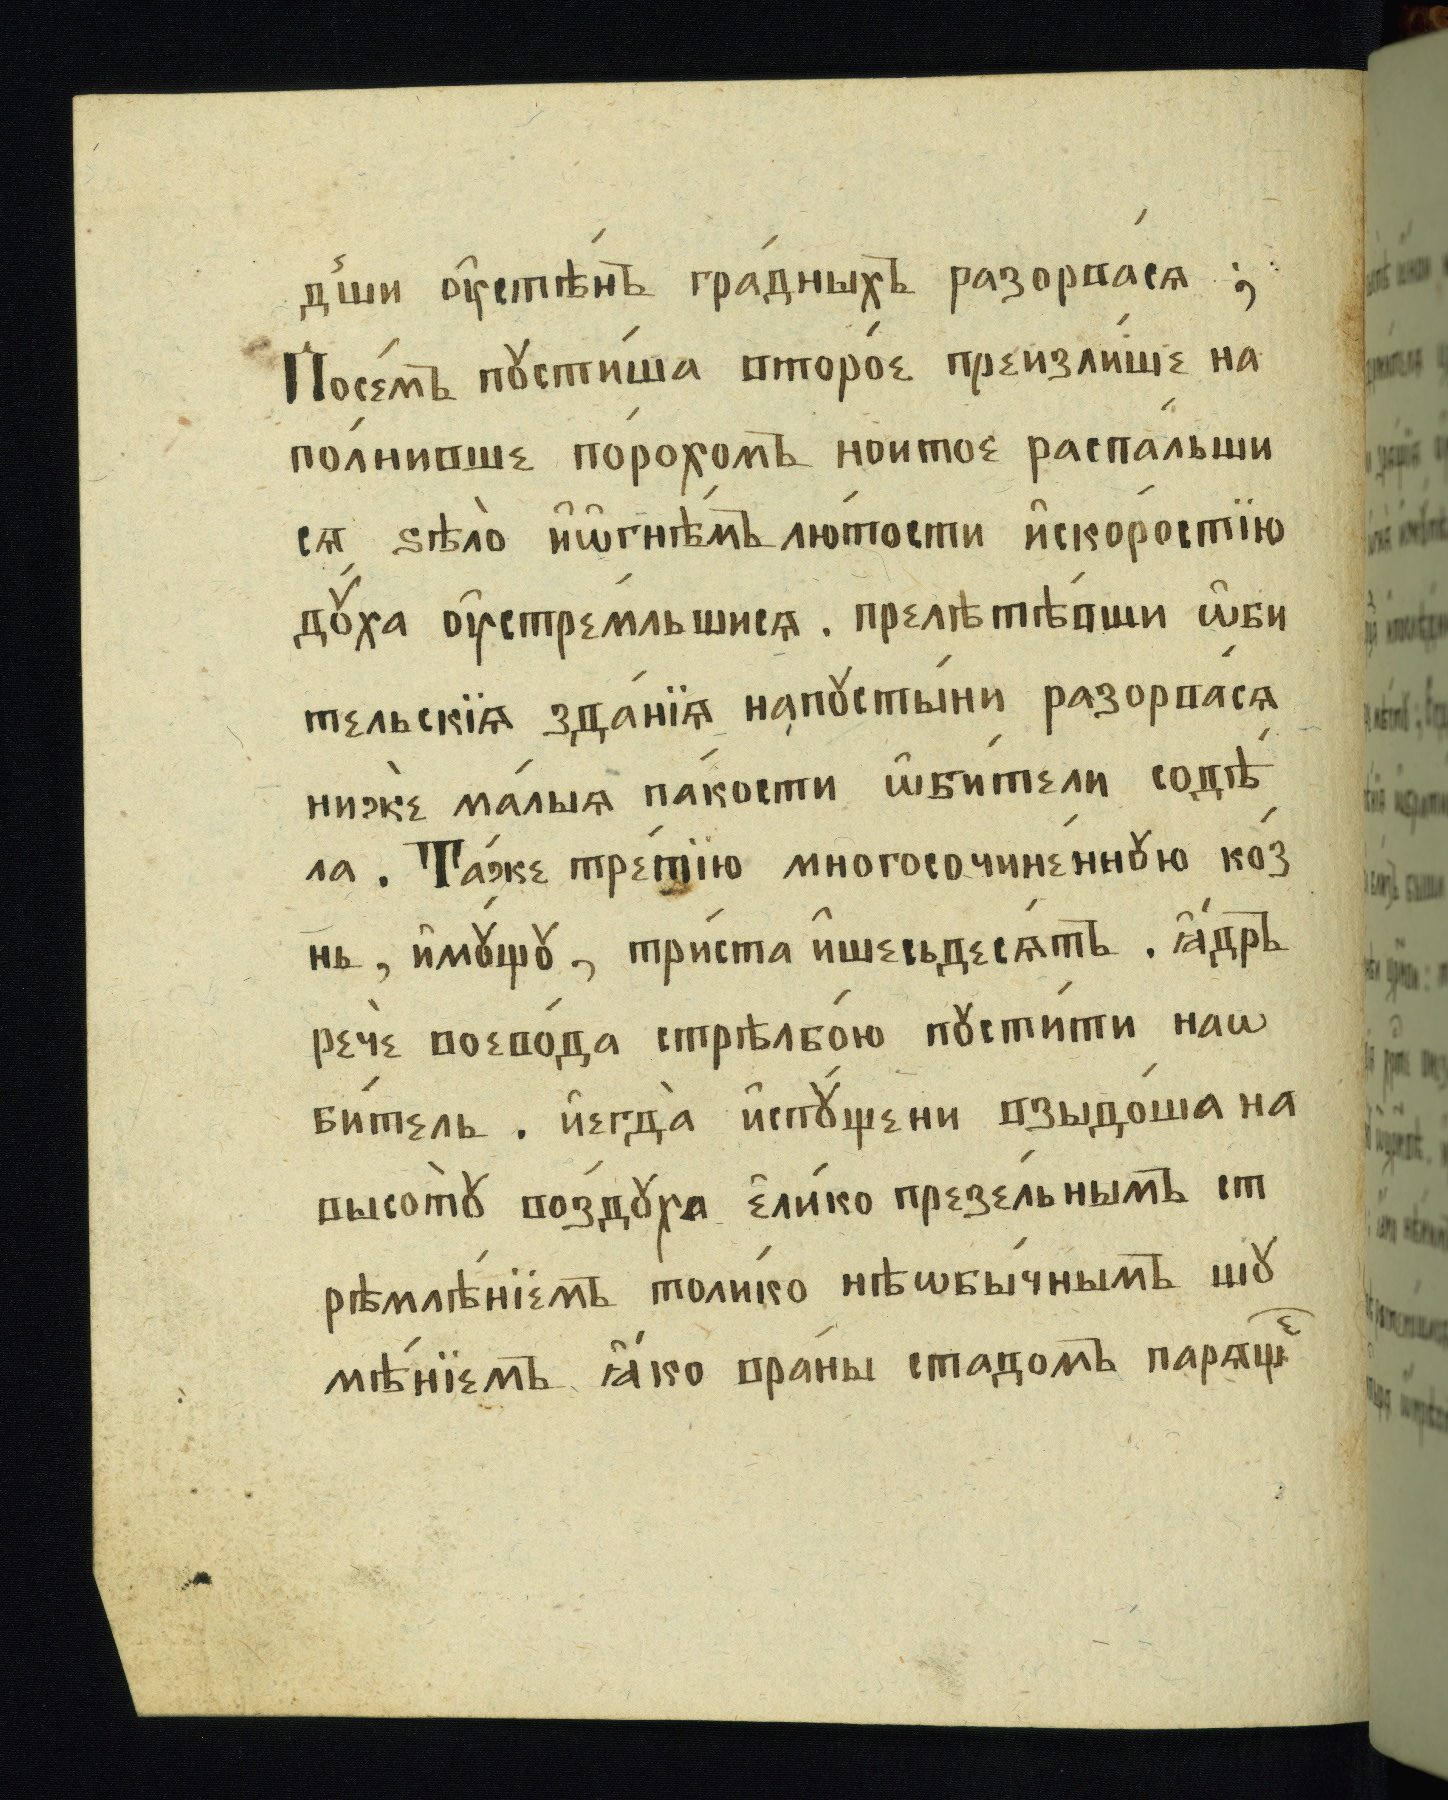 дꙋ́ши ᲂу҆стѣ́нъ гра́дныхъ разорва́сѧ ;
Посе́мъ пꙋсти́ша второ́е преизли́ще на
по́лнивше по́рохомъ ноитое распа́льши
сѧ ѕѣлѡ̀ и҆ѡ҆гнѣ́мъ лю́тости и҆ско́ростїю
дꙋ́ха ᲂу҆стре́мльшисѧ . прелѣтѣ́вши ѡ҆би
тельскїѧ зда́нїѧ напꙋсты́ни разорва́сѧ
нижѐ ма́лыѧ па́кости ѡ҆би́тели содѣ́
ла . Та́же тре́тїю многосочине́ннꙋю ко́з
нь , и҆мꙋ́щꙋ , три́ста и҆шесьдесѧ́тъ . ꙗ҆́дръ
речѐ воево́да стрѣлбо́ю пꙋсти́ти наѡ
би́тель . и҆егда̀ и҆спꙋ́щени взыдо́ша на
высотꙋ̀ во́здꙋха є҆ли́ко презе́льнымъ ст
рѣмлѣ́нїемъ толи́ко нѣѡбы́чнымъ шꙋ
мѣ́нїемъ ꙗ҆́ко вра́ны стадомъ парѧщⷷ